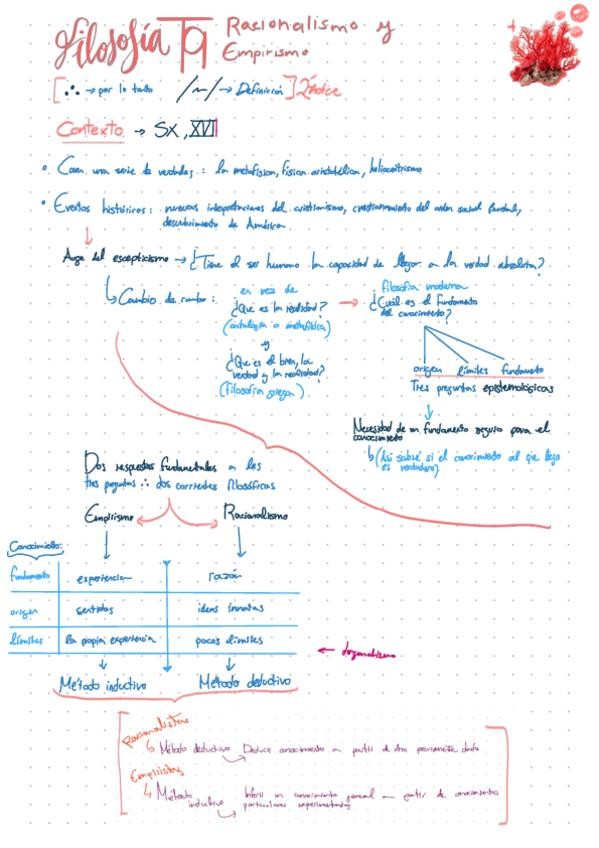 Filosofía T9 Racionalismo y
Empirismo
[∴ → por lo tanto /~/ → Definición] Índice
Contexto → SX, XVII
• Caen una serie de verdades: la metafísica, física aristotélica, heliocentrismo
• Eventos históricos: nuevas interpretaciones del cristianismo, cuestionamiento del orden social feudal,
descubrimiento de América.
Auge del escepticismo → ¿Tiene el ser humano la capacidad de llegar a la verdad absoluta?
Cambio de rumbo:
en vez de
¿Que es la realidad?
(ontología o metafísica)
y
¿Que es el bien, la
verdad y la realidad?
(filosofía griega)
filosofía moderna
¿Cuál es el fundamento
del conocimiento?
origen límites fundamento
Tres preguntas epistemológicas
Necesidad de un fundamento seguro para el
conocimiento
(Así sabré si el conocimiento al que llego
es verdadero)
Dos respuestas fundamentales a las
tres preguntas ∴ dos corrientes filosóficas
Empirismo Racionalismo
Conocimiento:
fundamento experiencia razón
origen sentidos ideas innatas
límites la propia experiencia pocos límites ← dogmatismo
Método inductivo Método deductivo
Racionalistas
Método deductivo Deducir conocimiento a partir de otro previamente dado
Empiristas
Método inductivo Inferir un conocimiento general a partir de conocimientos
particulares experimentados